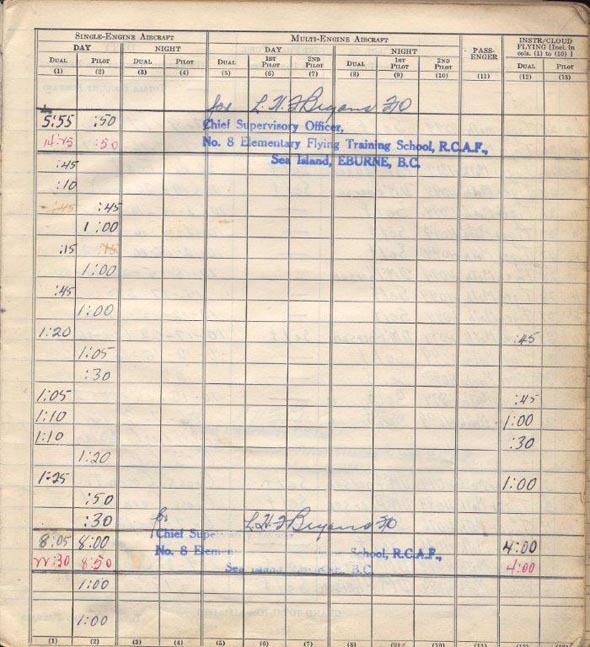 SINGLE-ENGINE AIRCRAFT MULTI-ENGINE AIRCRAFT PASS-ENGER INSTR/CLOUD FLYING [Incl. in cols. (1) to (10) ]
DAY NIGHT DAY NIGHT
DUAL PILOT DUAL PILOT DUAL 1ST PILOT 2ND PILOT DUAL 1ST PILOT 2ND PILOT DUAL PILOT
(1) (2) (3) (4) (5) (6) (7) (8) (9) (10) (11) (12) (13)
for L.H.F Bryans F/O
5:55 :50 Chief Supervisory Officer,
:50 No. 8 Elementary Flying Training School, R.C.A.F.,
:45 Sea Island, EBURNE, B.C.
:10
:45 :45
1:00
:15 :15
1:00
:45
1:00
1:20 :45
1:05
:30
1:05 :45
1:10 1:00
1:10 :30
1:20
1:25 1:00
:50
:30 for L.H.F Bryans F/O
8:05 8:00 Chief 4:00
8:50 No. 8 School, R.C.A.F., 4:00
Sea Island B.C.
1:00
1:00
(1) (2) (3) (4) (5) (6) (7) (8) (9) (10) (11) (12) (13)